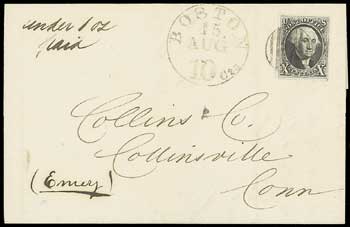 under 1 oz
paid
BOSTON
15
AUG
10 cts
POST OFFICE
X X
Collins & Co.
Collinsville
Conn
(Emery)